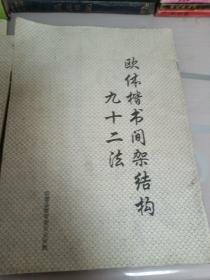 欧体楷书间架结构
九十二法